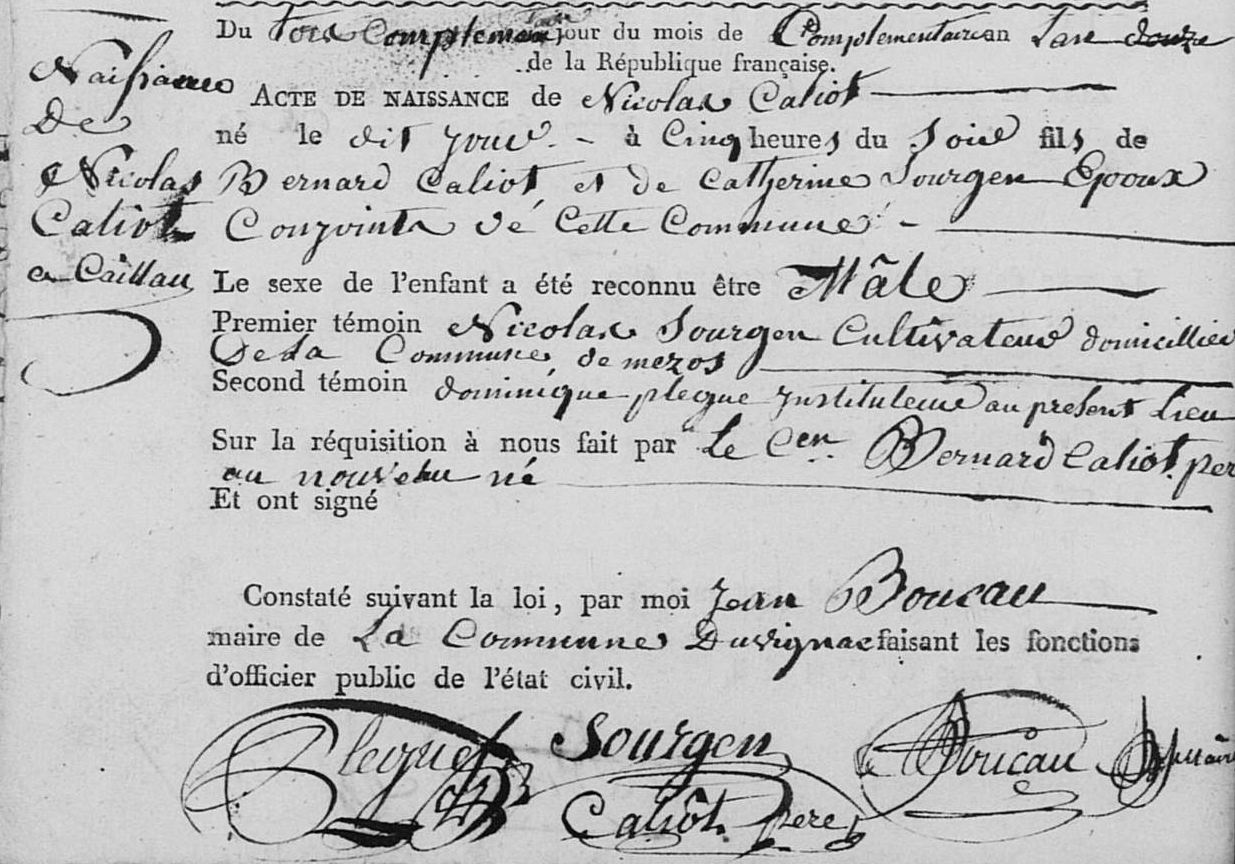 Du trois Complementaire jour du mois de Complementaire an L'an douze
de la République française.
Naissance
De
Nicolas
Caliot
a Caillau
ACTE DE NAISSANCE de Nicolas Caliot
né le dit jour - à Cinq heures du Soir fils de
Bernard Caliot et de Catherine Sourgen Epoux
Conjoints de Cette Commune -
Le sexe de l'enfant a été reconnu être Mâle
Premier témoin Nicolas Sourgen Cultivateur domicillier
De La Commune de mezos
Second témoin dominique plegue Instituteur au present Lieu
Sur la réquisition à nous fait par Le Cen Bernard Caliot per
au nouveau né
Et ont signé
Constaté suivant la loi, par moi Jean Boucau
maire de La Commune Duvignac faisant les fonctions
d'officier public de l'état civil.
Plegue Sourgen Boucau
Caliôt père